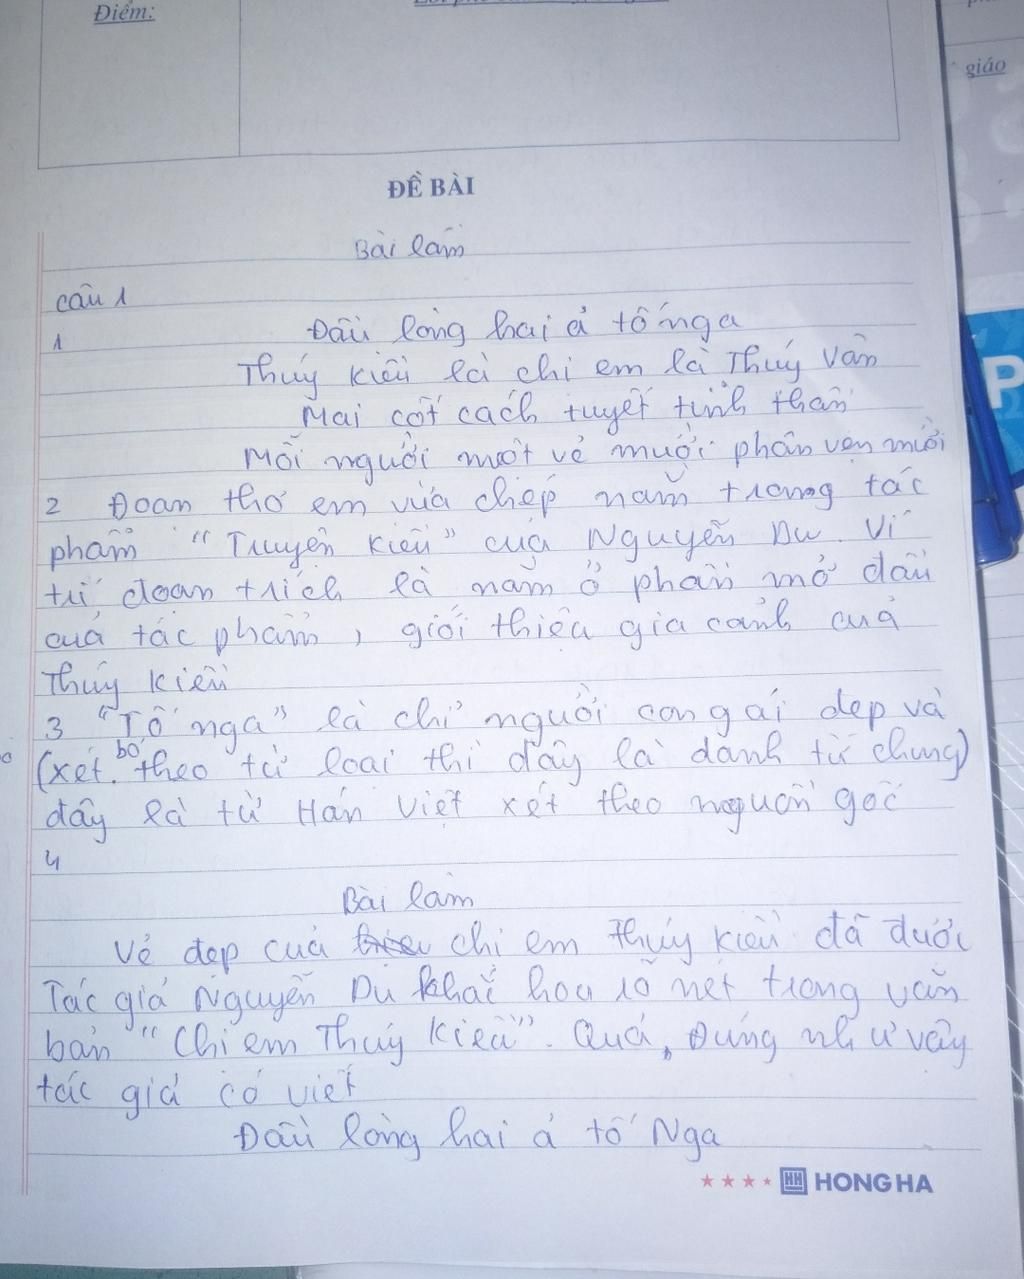 Điểm:
giáo
ĐỀ BÀI
Bài làm
câu 1
1 Đầu lòng hai ả tố nga
Thúy kiều là chi em là Thúy Vân
Mai cốt cách tuyết tinh thần
Mỗi người một vẻ mười phân vẹn mười
2 Đoan thơ em vừa chép nằm trong tác
phẩm "Truyện kiều" của Nguyễn Du. Vi
trí đoan trích là nằm ở phần mở đầu
của tác phẩm, giới thiệu gia cảnh của
Thúy kiều
3 "Tố nga" là chỉ người con gái đẹp và
(xét. bỏ theo từ loai thì đây là danh từ chung)
đây là từ Hán Việt xét theo nguồn gốc
4
Bài làm
Vẻ đẹp của chi em Thúy kiều đã được
Tác giả Nguyễn Du khắc hoa rõ nét trong văn
bản "Chi em Thúy Kiều". Quả, Đúng như vây
tác giả có viết
Đầu lòng hai ả tố Nga
HH HONG HA
P